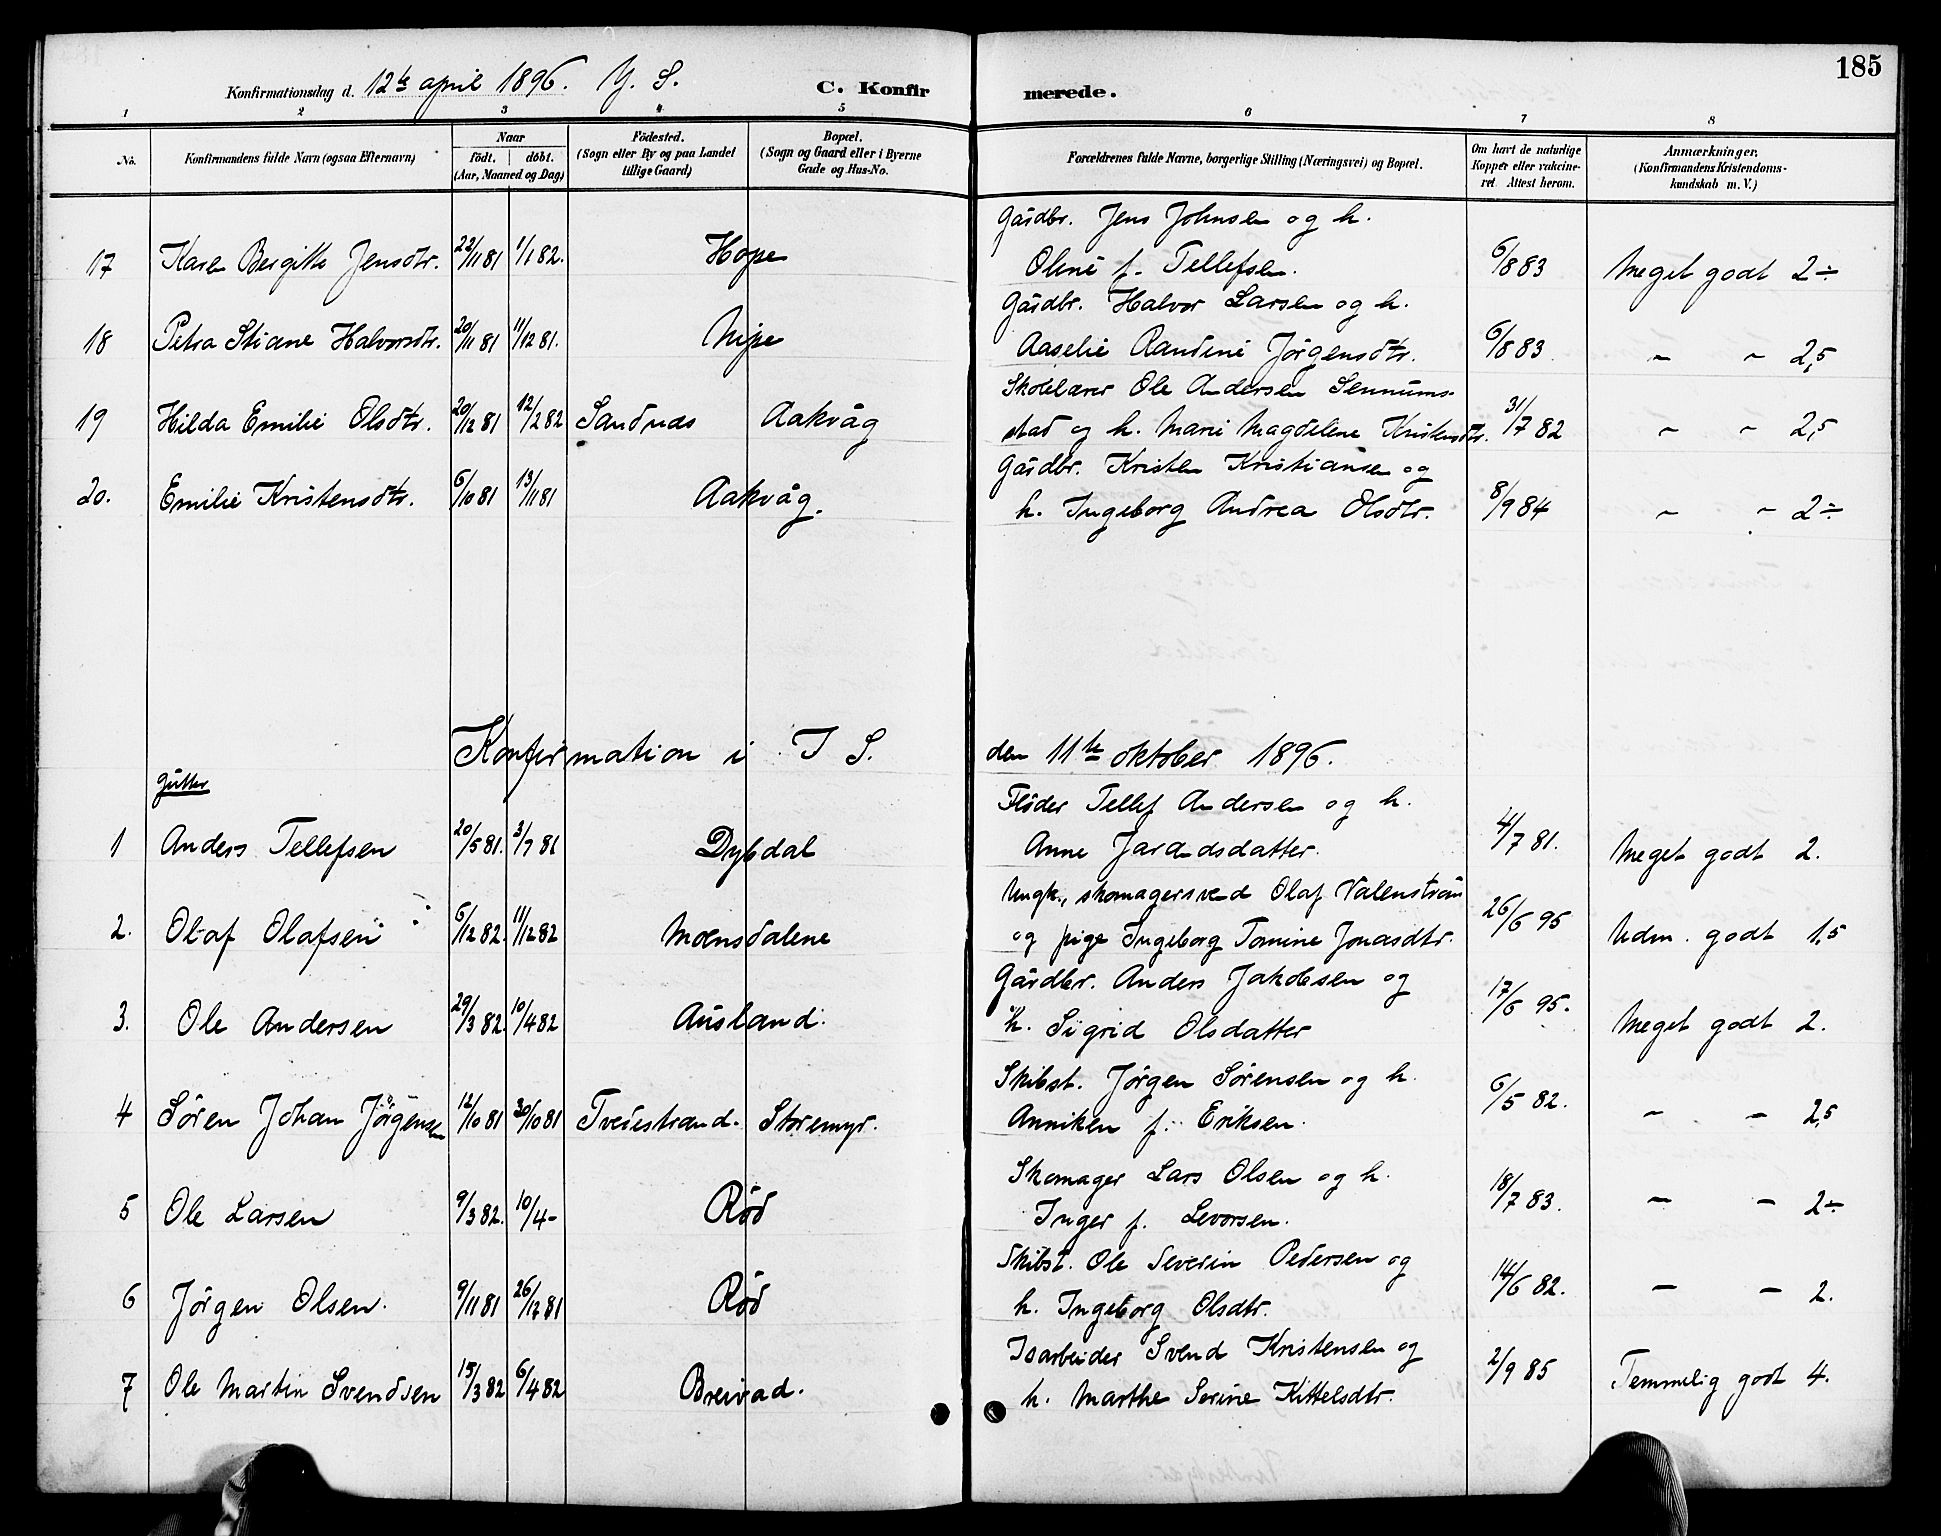 185
Konfirmationsdag d. 12te april 1896. Y. S. C. Konfir merede.
1 2 3 4 5 6 7 8
No. Konfirmandens fulde Navn (ogsaa Efternavn) Naar födt. döbt. (Aar, Maaned og Dag) Födested. (Sogn eller By og paa Landet tillige Gaard) Bopæl. (Sogn og Gaard eller i Byerne Gade og Hus-No. Forældrenes fulde Navne, borgerlige Stilling (Næringsvei) og Bopæl. Om havt de naturlige Kopper eller vakcineret. Attest herom. Anmærkninger, (Konfirmandens Kristendomskundskab m. V.)
Gårdbr. Jens Johnsen og h.
17 Karen Bergitte Jensdtr. 22/11 81 1/1 82. Hope Oline f. Tellefsen. 6/8 83 Meget godt 2÷
Gårdbr. Halvor Larsen og h.
18 Petra Stiane Halvorsdtr. 20/11 81 11/12 81. Nipe Aaselie Randine Jørgensdtr. 6/8 83 ~ ~ 2,5
Skolelærer Ole Andersen Sennums-
19 Hilda Emilie Olsdtr. 20/12 81 12/2 82 Sandnes Aakvåg stad og h. Marie Magdelene Kristensdtr. 31/7 82 ~ ~ 2,5
Gårdbr. Kristen Kristiansen og
20. Emilie Kristensdtr. 6/10 81 13/11 81 Aakvåg. h. Ingeborg Andrea Olsdtr. 8/9 84 ~ ~ 2÷
Konfirmation i I S. den 11te oktober 1896.
Gutter
Fløder Tellef Andersen og h.
1 Anders Tellefsen 20/5 81. 3/7 81 Dybdal Anne Jarandsdatter. 4/7 81. Meget godt 2.
Ungk., skomagersvend Olaf Valenstrøm
2. Olaf Olafsen 6/12 82. 11/12 82 Moensdalene og pige Ingeborg Tomine Jonasdtr. 26/6 95 Udm. godt 1,5
Gårdbr. Anders Jakobsen og
3. Ole Andersen 29/3 82. 10/4 82 Ausland. h. Sigrid Olsdatter 17/6 95. Meget godt 2.
Skibst. Jørgen Sørensen og h.
4 Søren Johan Jørgensen 12/10 81 30/10 81 Tvedestrand. Storemyr. Anniken f. Eriksen. 6/5 82. ~ ~ 2,5
Skomager Lars Olsen og h.
5 Ole Larsen 9/3 82. 10/4 - Rød Inger f. Levorsen. 18/7 83. — — 2÷
Skibst. Ole Severin Pedersen og
6 Jørgen Olsen. 9/11 81 26/12 81 Rød h. Ingeborg Olsdtr. 14/6 82. — — 2.
Isarbeider Svend Kristensen og
7 Ole Martin Svendsen 15/3 82 6/4 82 Breivad. h. Marthe Serine Kittelsdtr. 2/9 85 Temmelig godt 4.